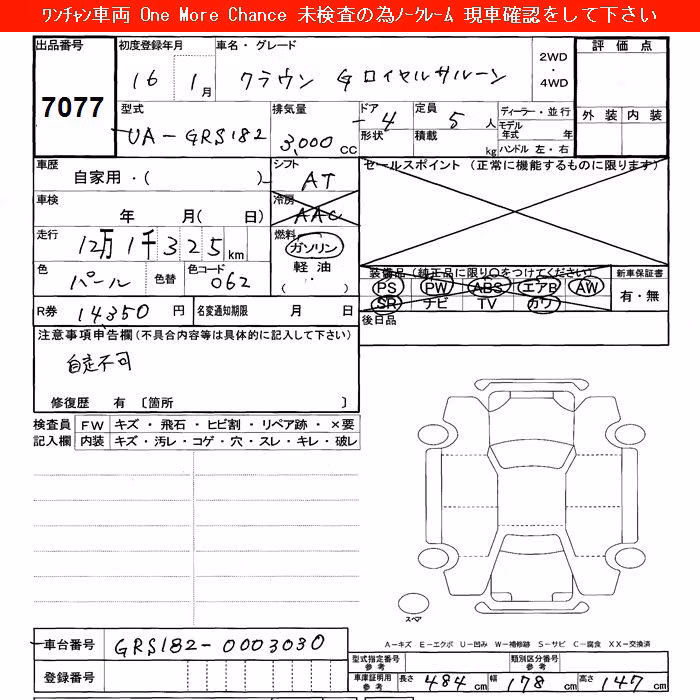 ﾜﾝﾁｬﾝ車両 One More Chance 未検査の為ﾉｰｸﾚｰﾑ 現車確認をして下さい
出品番号 初度登録年月 車名・グレード 2WD ・ 4WD 評価点
7077 16 1月 クラウン G ロイヤルサルーン
型式 排気量 ドア 定員 ディーラー・並行 外装 内装
UA-GRS182 3,000 CC -4 5 人 モデル年式 年
形状 積載 kg ハンドル 左・右
車歴 自家用・( ) シフト AT セールスポイント (正常に機能するものに限ります)
車検 年 月( 日) 冷房 AAC
走行 12万1千325km 燃料 ガソリン
軽油・
色 パール 色替 色コード 062 装備品(純正品に限り○をつけてください) 新車保証書
PS PW ABS エアB AW 有・無
SR ナビ TV カワ
R券 14350 円 名変通知期限 月 日 後日品
注意事項申告欄(不具合内容等は具体的に記入して下さい)
自走不可
修復歴 有 〔箇所
検査員記入欄 FW キズ・飛石・ヒビ割・リペア跡・×要
内装 キズ・汚レ・コゲ・穴・スレ・キレ・破レ
スペア
A−キズ E−エクボ U−凹み W−補修跡 S−サビ C−腐食 XX−交換済
車台番号 GRS182-0003030
型式指定番号参考 類別区分番号参考
登録番号 車庫証明用参考 長さ 484 cm 幅 178 cm 高さ 147 cm